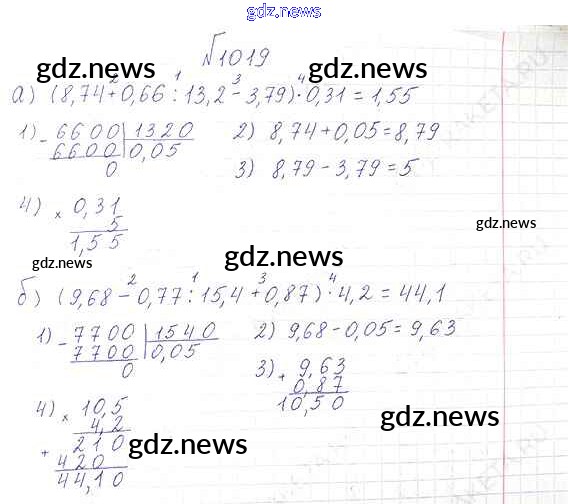 gdz.news
№1019
gdz.news gdz.news
а) (8,74 + 0,66 : 13,2 - 3,79) · 0,31 = 1,55
2 1 3 4
1) - 6600 | 1320
6600 | 0,05
0
2) 8,74 + 0,05 = 8,79
3) 8,79 - 3,79 = 5
4) × 0,31
5
1,55
gdz.news
gdz.news
gdz.news
б) (9,68 - 0,77 : 15,4 + 0,87) · 4,2 = 44,1
2 1 3 4
1) - 7700 | 1540
7700 | 0,05
0
2) 9,68 - 0,05 = 9,63
3) + 9,63
0,87
10,50
4) × 10,5
4,2
+ 210
420
44,10
gdz.news
gdz.news